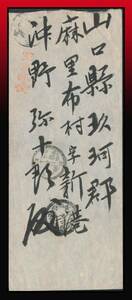 山口縣玖珂郡
麻里布村字新港
沖野弥十郎殿